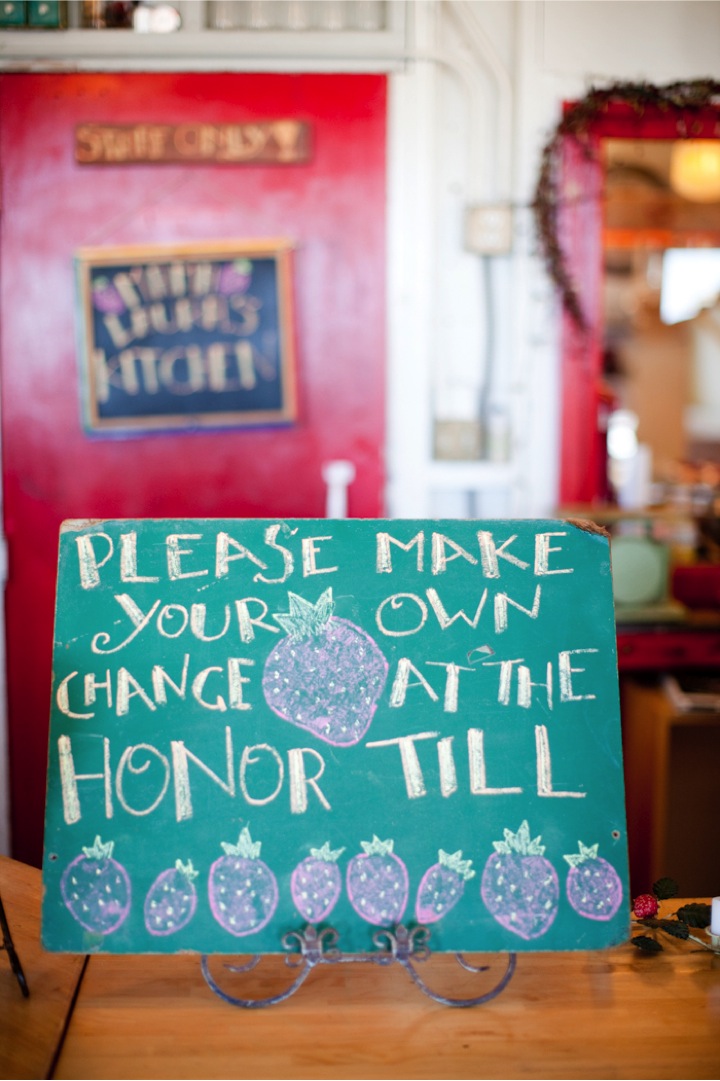 STAFF ONLY!
KITCHEN
PLEASE MAKE
YOUR OWN
CHANGE AT THE
HONOR TILL